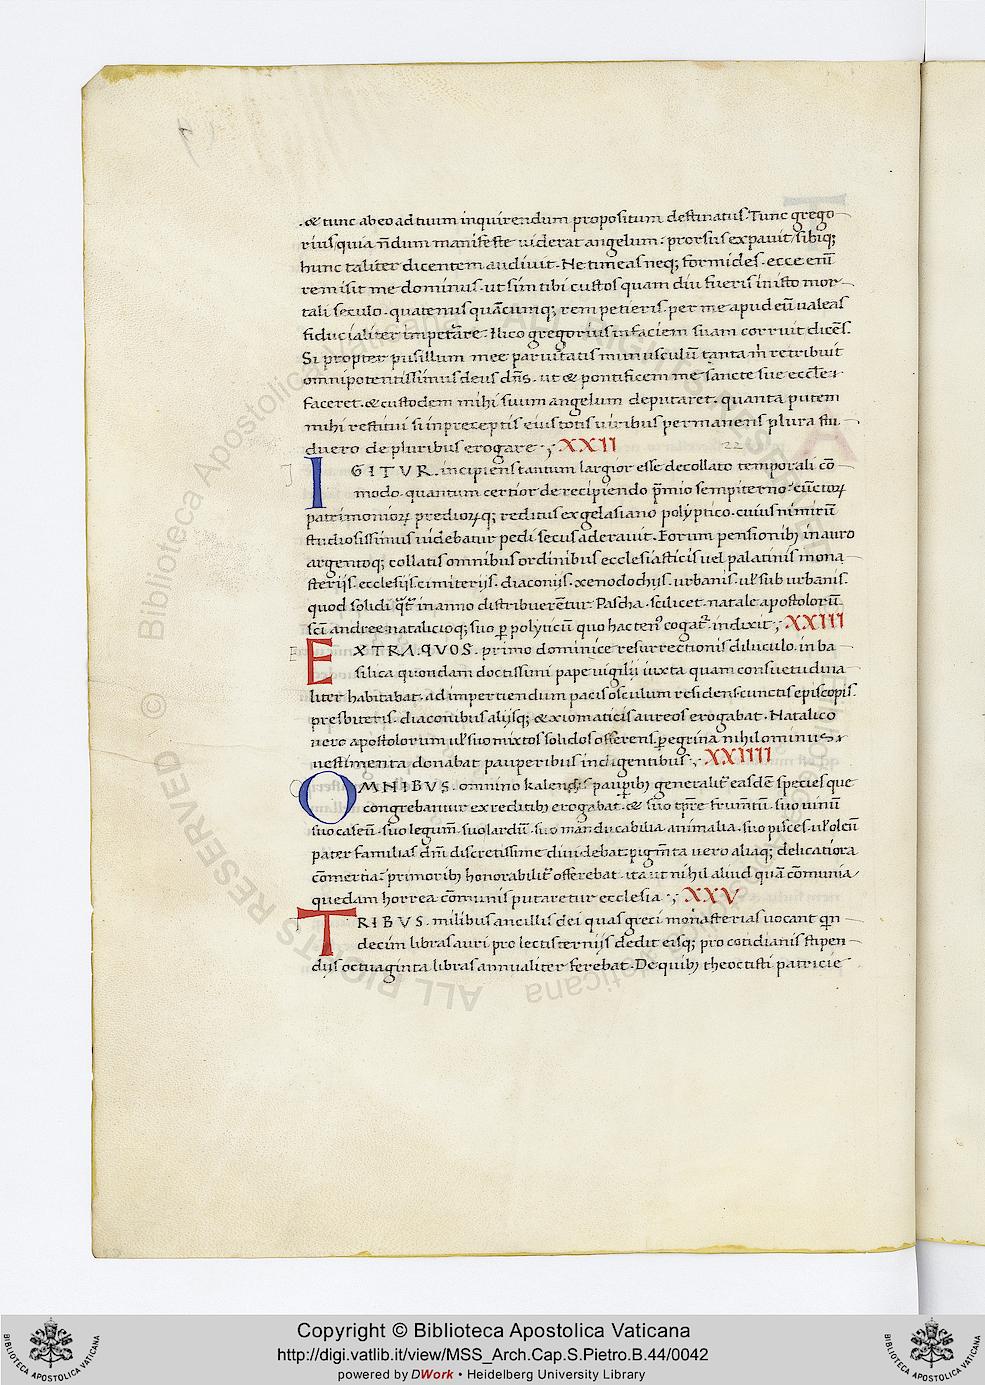 .& tunc ab eo ad tuum inquirendum propositum destinatus. Tunc grego-
rius, quia n̄dum manifeste uiderat angelum: prorsus expauit, sibiq;
hunc taliter dicentem audiuit. Ne timeas neq; formides. ecce enī
remisit me dominus. ut sim tibi custos quam diu fueris in isto mor-
tali seculo. quatenus quācumq; rem petieris. per me apud eū ualeas
fiducialiter impetrare. Ilico gregorius in faciem suam corruit dicēs.
Si propter pusillum mee paruitatis munusculū tanta m̄ retribuit
omnipotentissimus deus dn̄s. ut & pontificem me sancte sue eccl̄e
faceret. & custodem mihi suum angelum deputaret. quanta putem
mihi restitui si in preceptis eius totis uiribus permanens plura stu-
duero de pluribus erogare·; XXII 22
IGITVR. incipiens tantum largior esse de collato temporali cō-
modo. quantum certior de recipiendo p̄mio sempiterno. cūctoꝝ
patrimonioꝝ predioꝝq; reditus ex gelasiano polyptico. cuius nimirū
studiosissimus uidebatur pedisecus aderauit. Eorum pensionibꝫ in auro
argentoq; collatis omnibus ordinibus ecclesiasticis uel palatinis mona-
sterijs. ecclesijs. cimiterijs. diaconijs. xenodochijs. urbanis. ul̄ suburbanis.
quod solidi q̄t in anno distribuerētur. Pascha. scilicet. natale apostolorū.
sc̄i andree. natalicioq; suo ꝑ polyticū quo hactenꝰ cogat. indixit·; XXIII
EXTRA QVOS. primo dominice resurrectionis diluculo. in ba-
silica quondam doctissimi pape uigilij iuxta quam consuetudina-
liter habitabat. ad impertiendum pacis osculum residens. cunctis episcopis.
presbiteris. diaconibus alijsq; & xiomaticis aureos erogabat. Natalico
uero apostolorum ul̄ suo mixtos solidos offerens. ꝑegrina nihilominus
uestimenta donabat pauperibus indigentibus·; XXIIII
OMNIBVS. omnino kalendis pauꝑibꝫ generalit̄ easdē species que
congrebantur ex reditibꝫ erogabat. & suo tꝑre frumtū. suo uinū
suo caseū. suo legum̄. suo lardū. suo manducabilia animalia. suo pisces. ul̄ oleū
pater familias dn̄i discretissime diuidebat: pigm̄ta uero aliaq; delicatiora
cōmertia: primoribꝫ honorabilit̄ offerebat. ita ut nihil aliud quā cōmunia
quedam horrea cōmunis putaretur ecclesia·; XXV
TRIBVS. milibus ancillis dei quas greci monasterias uocant qn̄-
decim libras auri pro lectisternijs dedit eisq; pro cotidianis stipen-
dijs octuaginta libras annualiter ferebat. De quibꝫ theoctisti patricie
Copyright © Biblioteca Apostolica Vaticana
http://digi.vatlib.it/view/MSS_Arch.Cap.S.Pietro.B.44/0042
powered by DWork • Heidelberg University Library